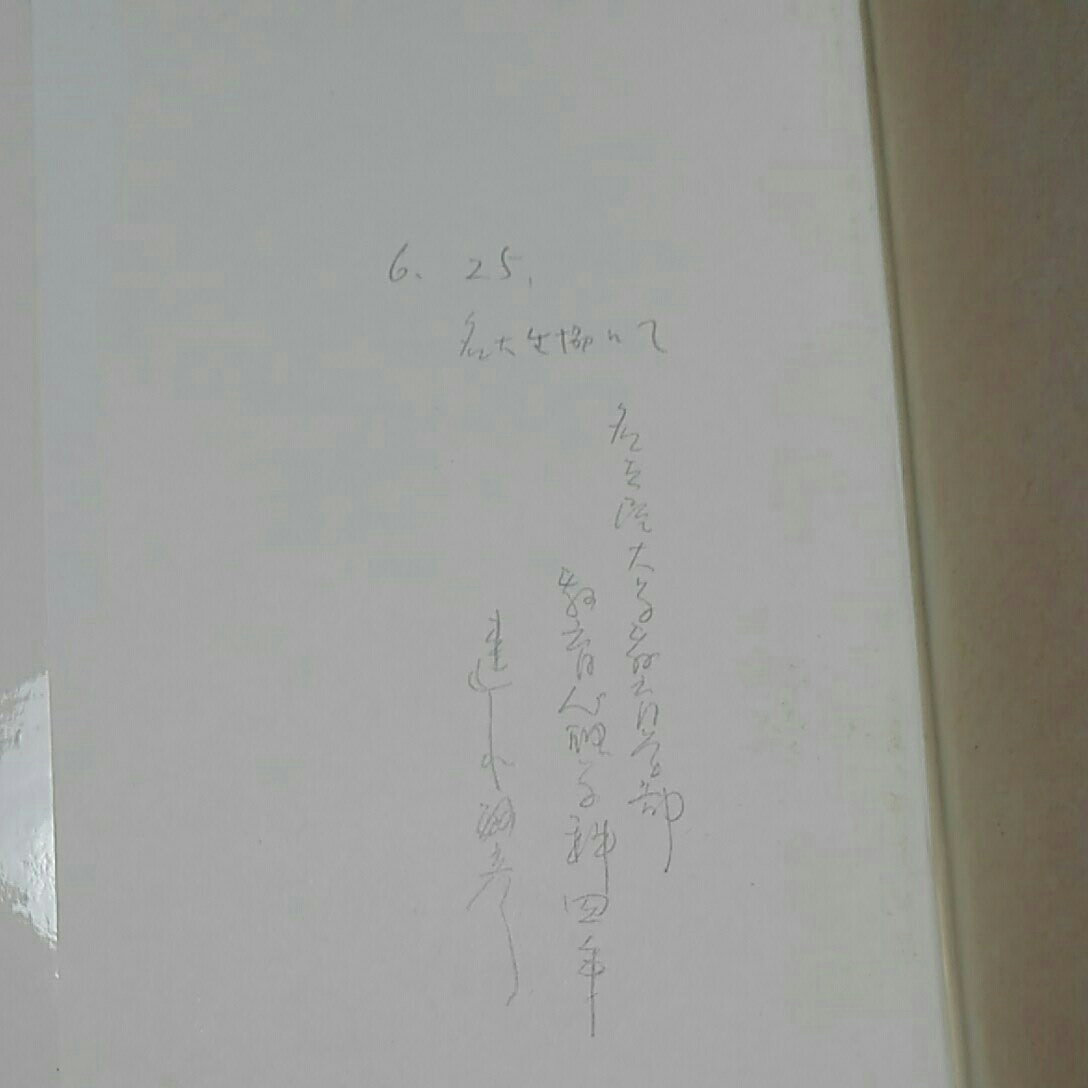 6. 25.
名大生協にて
名古屋大学教育学部
教育心理学科四年
速水敏彦